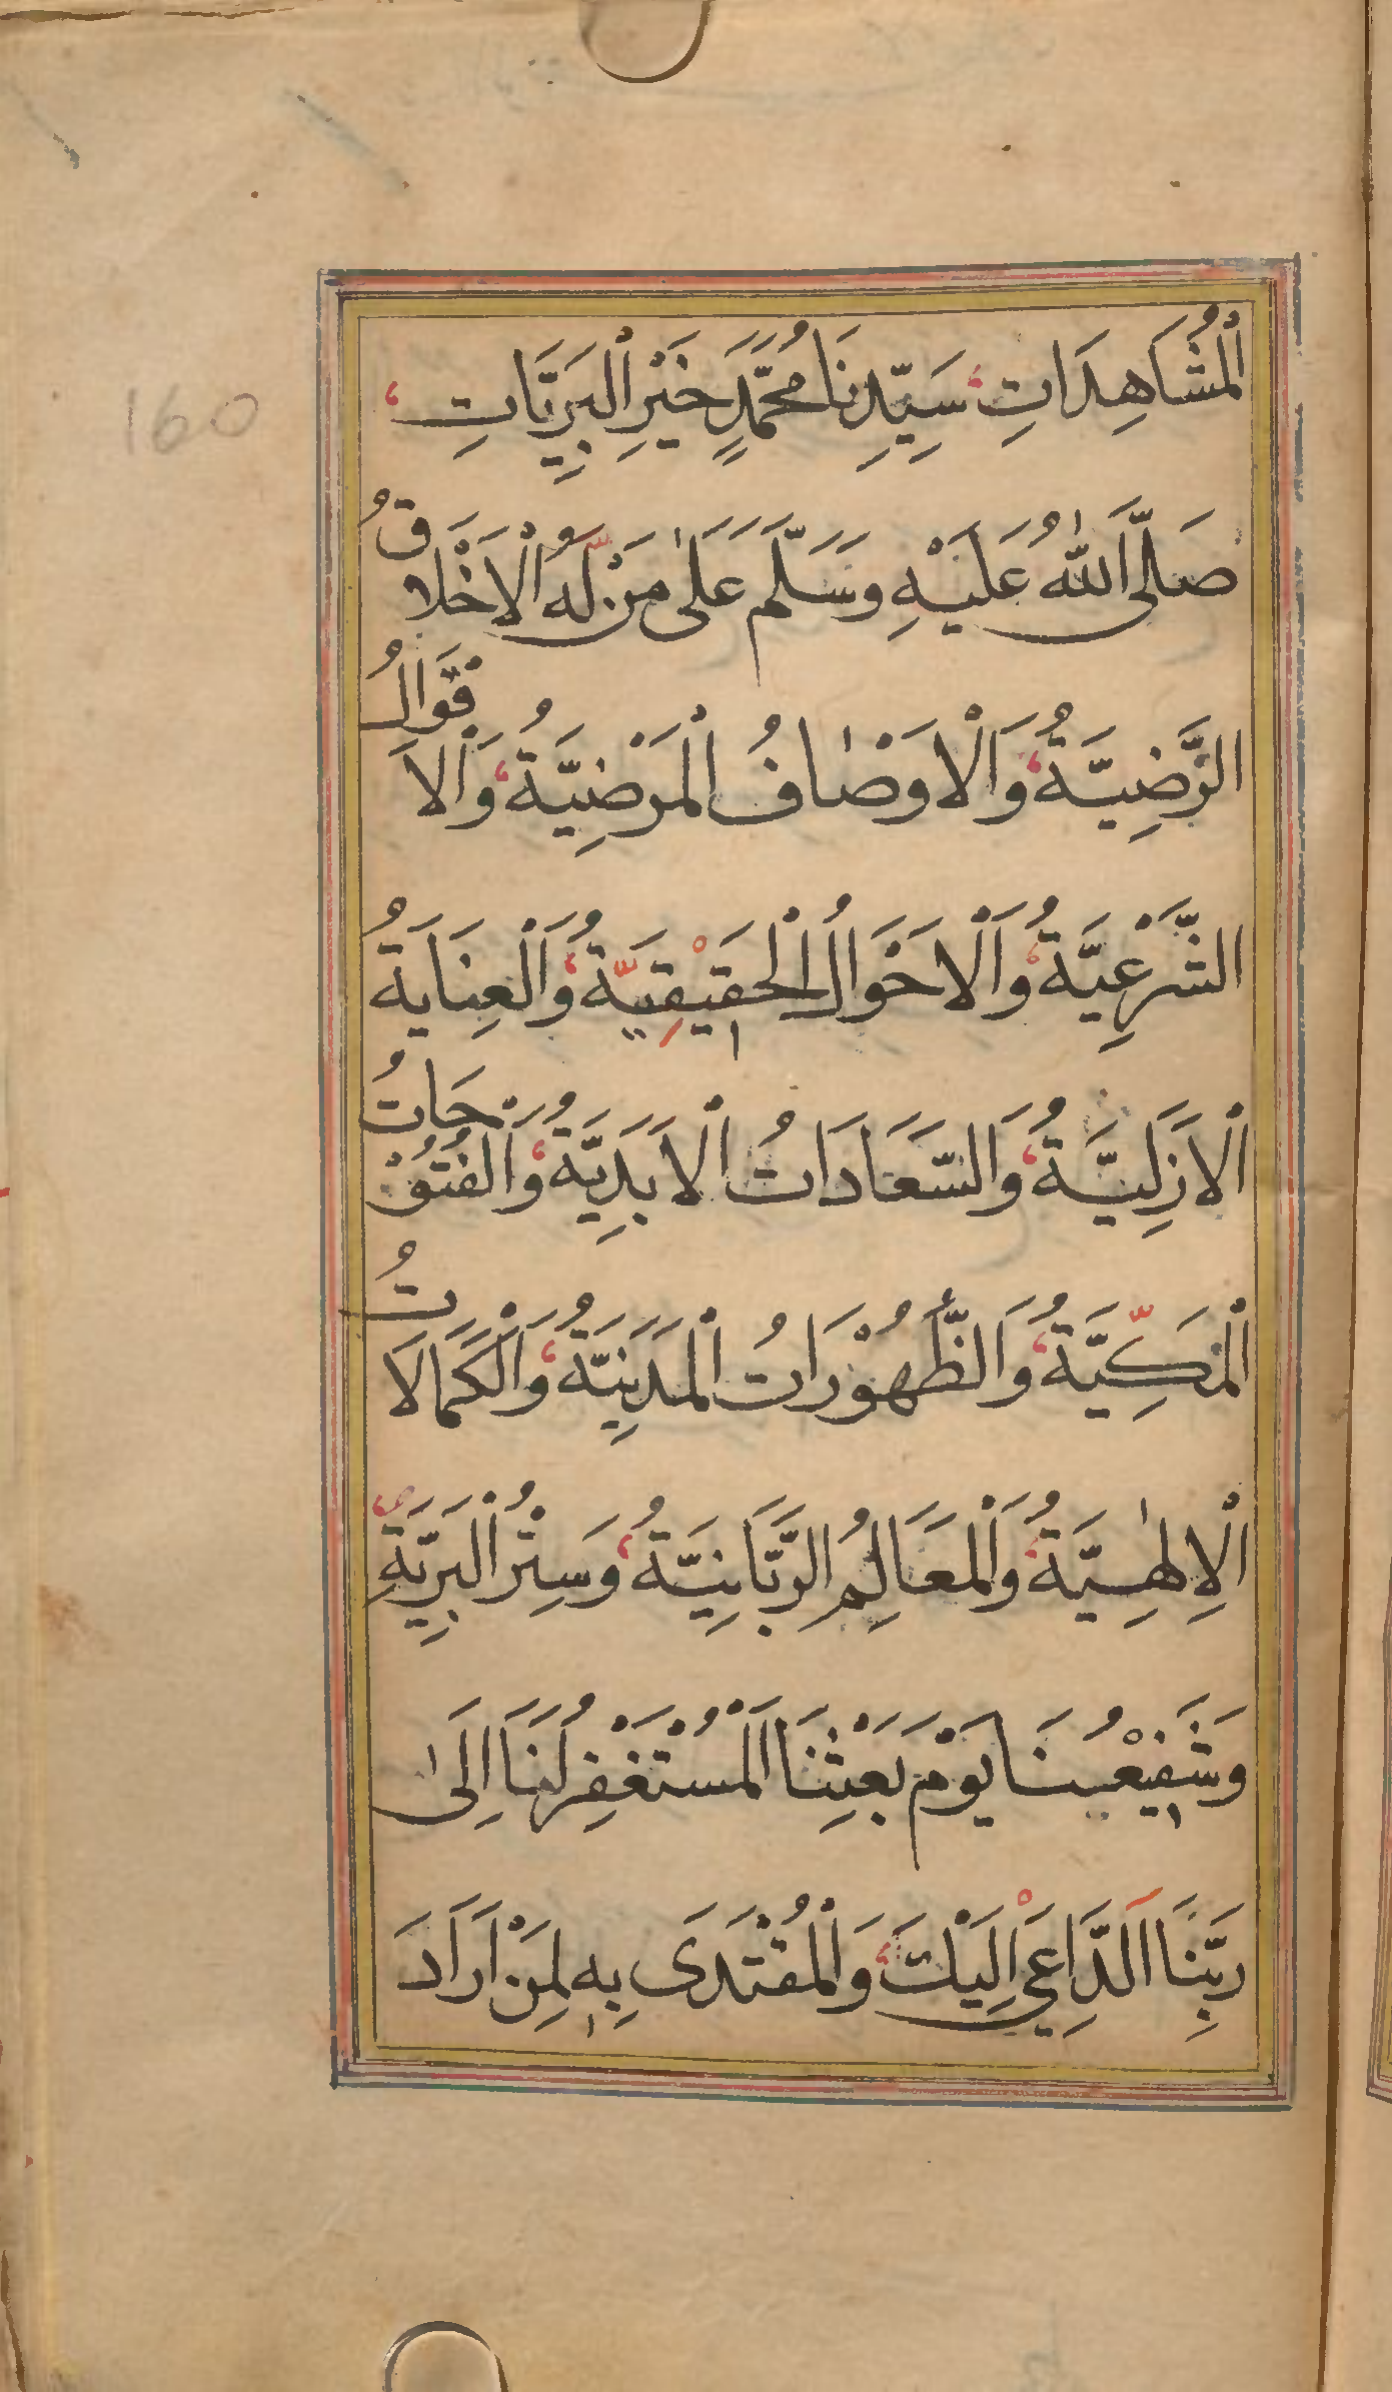 اَلْمُشَاهِدَاتِ، سَيِّدِنَا مُحَمَّدٍ خَيْرِ الْبَرِيَّاتِ،
صَلَّى اللّٰهُ عَلَيْهِ وَسَلَّمَ عَلٰى مَنْ لَّهُ الْاَخْلَاقُ
الرَّضِيَّةُ، وَالْاَوْصٰافُ الْمَرْضِيَّةُ، وَالْاَقْوَالُ
الشَّرْعِيَّةُ، وَالْاَحْوَالُ الْحَقِيْقِيَّةُ، وَالْعِنَايَةُ
الْاَزَلِيَّةُ، وَالسَّعَادَاتُ الْاَبَدِيَّةُ، وَالْفُتُوْحَاتُ
الْمَكِّيَّةُ، وَالظُّهُوْرَاتُ الْمَدَنِيَّةُ، وَالْكَمَالَاتُ
الْاِلٰهِيَّةُ، وَالْمَعَالِمُ الرَّبَّانِيَّةُ، وَسِتْرُ الْبَرِيَّةِ
وَشَفِيْعُنَا يَوْمَ بَعْثِنَا الْمُسْتَغْفِرُ لَنَا اِلٰى
رَبِّنَا الدَّاعِيْ اِلَيْكَ، وَالْمُقْتَدَى بِهٖ لِمَنْ اَرَادَ
160